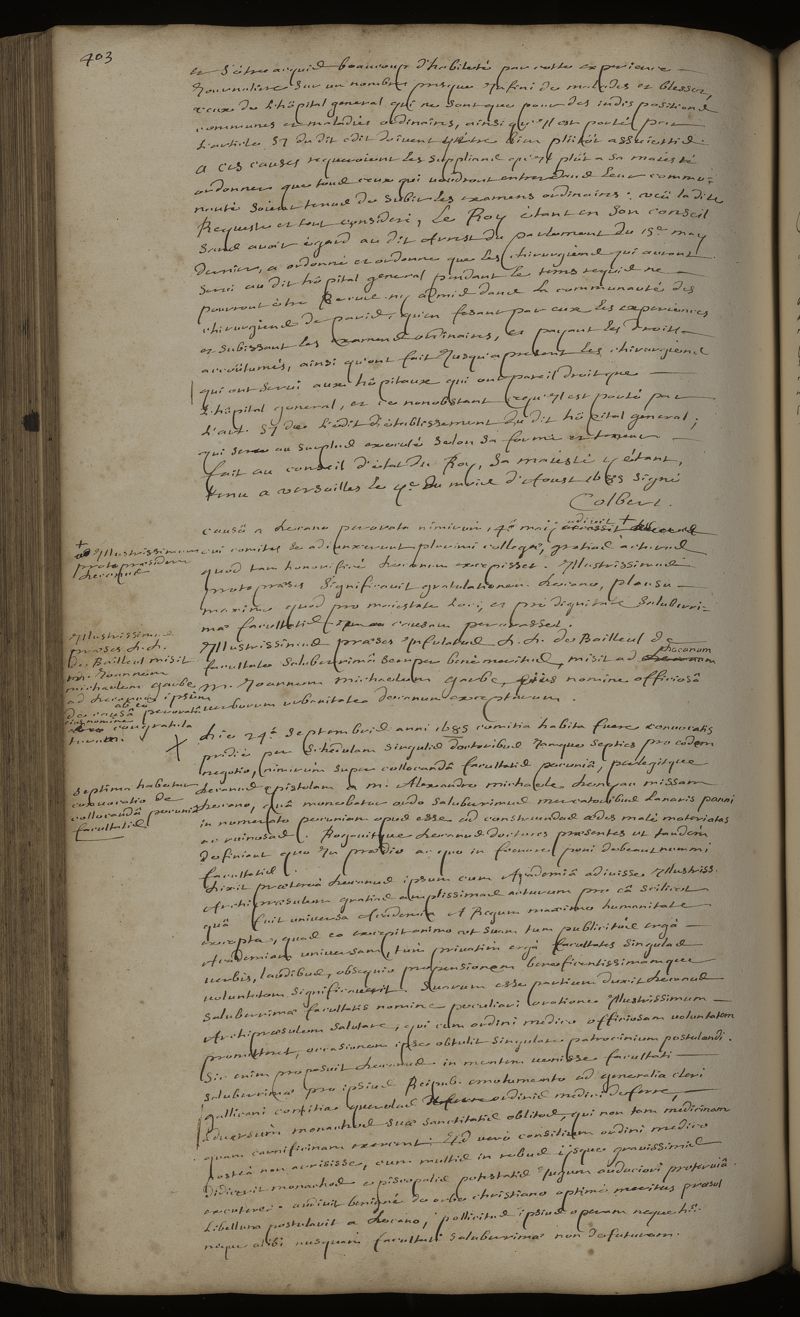 403
et s'être acquis beaucoup d'habileté par cette experience
Journaliere sur un nombre presque Infini de malades et blessez,
ceux de L'hôpital general qui ne sont que pour des indispositions
communes et maladies ordinaires, ainsi qu'Il est porté par
L'article 57 du dit edit doivent être bien plûtôt assujettis.
A ces causes requeroient Les supplians qu'Il plût a sa majesté
ordonner que tous ceux qui voudront entrer dans leur commu-
nauté soient tenus de subir Les examens ordinaires. veu la dite
Requeste et tout consideré, Le Roy étant en son conseil
sans avoir égard au dit Arrest du parlement du 15e may
dernier, a ordonné et ordonne que Les chirurgiens qui auront
servi au dit hôpital general pendant le tems requis ne
pourront être ny admis dans la communauté des
chirurgiens de paris, qu'en fesant par eux les experiences
et subissant les examens ordinaires, et payant les droits
accoûtumés, ainsi qu'ont fait Jusqu'a present les chirurgiens
qui ont servi aux hôpitaux qui ont pareil droit que
L'hôpital general, et ce nonobstant ce qu'Il est porté par
L'art. 57 de L'édit d'établissement du dit hôpital general;
qui sera au surplus executé selon sa forme et teneur
fait au conseil d'état du Roy, sa majesté y étant,
tenu a versailles le du mois d'Aoust 1685 signé
Colbert.
causâ a decano perorata nimirum, 14e maij adivit +
+
ad Illustrissimum
protopræsidem
decanus
cui comites se adiunxerunt plurimi collegæ, gratias acturus
quod tam honorificè decanum excepisset. Illustrissimus
protopræses significavit gratulationem decano, plausu
maximo quod pro majestate loci, et pro dignitate saluberri-
mæ facultatis causam perorasset.
Illustrissimus
præses d. d.
de Bailleul misit
m. Joannem
michaelem garbe
ad decanum ipsum
de causâ perorata
ab eo
congratula
turum
Illustrissimus præses Infulatus d. d. de Bailleul de
facultate saluberrimâ semper benè meritus, misit ad decanum
m. Joannem michaelem garbe, eius nomine officiosâ
verborum urbanitate decanum excepturum.
X
die 24a septembris anni 1685 comitia habita fuere convocatis
pridie per schedulam singulis doctoribus Iamque septies pro eodem
negotio, nimirum super collocandâ facultatis pecuniâ, perlegitque
septima habetur
convocatio de
collocandâ pecuniâ
facultatis
decanus epistolam a m. Alexandro michaele missam
decano, quâ monebatur ordo saluberrimus mercatoribus Lanaris panni
in numerato pecuniam opus esse ad construendas ædes malè materiatas
ac ruinosas. Rogavitque decanus doctores præsentes ut tandem
definiant quo In prædio ac quo in fœnore poni debeant nummi
facultatis.
dixit præterea decanus ipsum cum Academiâ adivisse Illustriss.
Archipræsulem gratias amplissimas acturum pro eâ scilicet
quâ fuit universa Academia A Regum maximo humanitate
excepta, quod eo exceperit animo ut suam tum publicitùs ergà
Academiam universam, tùm privatim ergà facultates singulas
verbis, laudibus, obsequio propensionem beneficentissimamque
voluntatem significaverit. suarum esse partium duxit decanus
saluberrimæ facultatis nomine peculiari oratione Illustrissimum
Archipræsulem salutare, qui cum ordini medico officiosam voluntatem
promitteret, occasionem ipse obtulit singulare patrocinium postulandi.
sic enim proposuit decanus in mentem venisse facultati
saluberrimæ pro ipsius Reipub. emolumento ad generalia cleri
gallicani comitia querelas ordinis medici deferre,
adversùm monachos suæ sanctitatis oblitos, qui non tam medicinam
quam carnificinam exercent; Id verò consilium ordini medico
posteà non arrisisse, cum multis in rebus ijsque gravissimis
didicerit monachos episcopalis potestatis Iugum audaciori protervià
excutere. audivit benignè de orbe christiano optimè meritus præsul
Libellum postulavit a decano, pollicitus ipsius operam neque hic
neque alibi nusquam facultati saluberrimæ non defuturam.